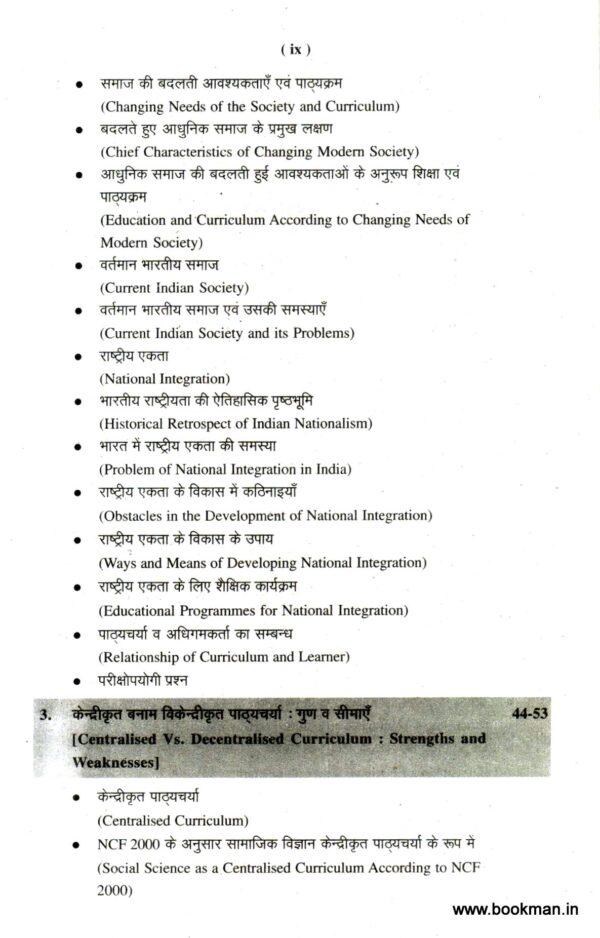 ( ix )
• समाज की बदलती आवश्यकताएँ एवं पाठ्यक्रम
(Changing Needs of the Society and Curriculum)
• बदलते हुए आधुनिक समाज के प्रमुख लक्षण
(Chief Characteristics of Changing Modern Society)
• आधुनिक समाज की बदलती हुई आवश्यकताओं के अनुरूप शिक्षा एवं
पाठ्यक्रम
(Education and Curriculum According to Changing Needs of
Modern Society)
• वर्तमान भारतीय समाज
(Current Indian Society)
• वर्तमान भारतीय समाज एवं उसकी समस्याएँ
(Current Indian Society and its Problems)
• राष्ट्रीय एकता
(National Integration)
• भारतीय राष्ट्रीयता की ऐतिहासिक पृष्ठभूमि
(Historical Retrospect of Indian Nationalism)
• भारत में राष्ट्रीय एकता की समस्या
(Problem of National Integration in India)
• राष्ट्रीय एकता के विकास में कठिनाइयाँ
(Obstacles in the Development of National Integration)
• राष्ट्रीय एकता के विकास के उपाय
(Ways and Means of Developing National Integration)
• राष्ट्रीय एकता के लिए शैक्षिक कार्यक्रम
(Educational Programmes for National Integration)
• पाठ्यचर्या व अधिगमकर्ता का सम्बन्ध
(Relationship of Curriculum and Learner)
• परीक्षोपयोगी प्रश्न
3. केन्द्रीकृत बनाम विकेन्द्रीकृत पाठ्यचर्या : गुण व सीमाएँ 44-53
[Centralised Vs. Decentralised Curriculum : Strengths and
Weaknesses]
• केन्द्रीकृत पाठ्यचर्या
(Centralised Curriculum)
• NCF 2000 के अनुसार सामाजिक विज्ञान केन्द्रीकृत पाठ्यचर्या के रूप में
(Social Science as a Centralised Curriculum According to NCF
2000)
www.bookman.in